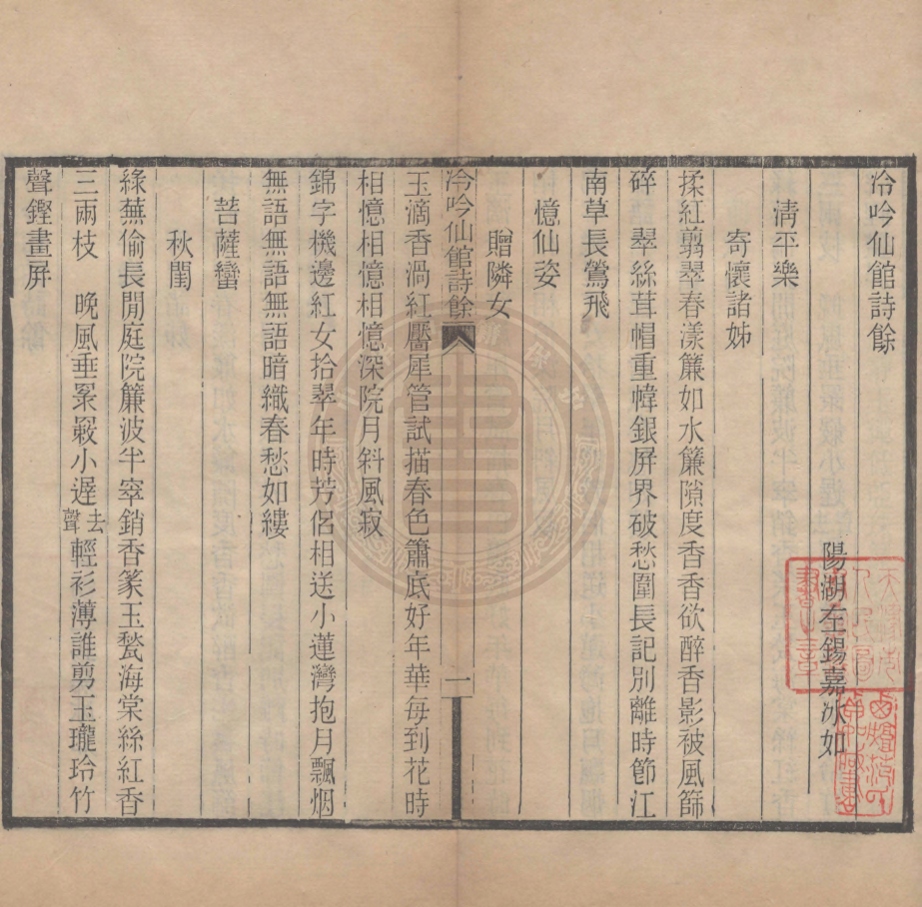 冷吟仙館詩餘
陽湖左錫嘉冰如
清平樂
寄懷諸姊
揉紅翦翠春漾簾如水簾隙度香香欲醉香影被風篩
碎　翠絲茸帽重幃銀屏界破愁圍長記別離時節江
南草長鶯飛
憶仙姿
贈隣女
冷吟仙館詩餘
一
玉滴香渦紅靨犀管試描春色簫底好年華每到花時
相憶相憶相憶深院月斜風寂
錦字機邊紅女拾翠年時芳侶相送小蓮灣抱月飄烟
無語無語無語暗織春愁如縷
菩薩蠻
秋閨
綠蕪偷長閒庭院簾波半窣銷香篆玉甃海棠絲紅香
三兩枝　晚風垂罘罳小遲去聲輕衫薄誰剪玉瓏玲竹
聲鏗畫屏